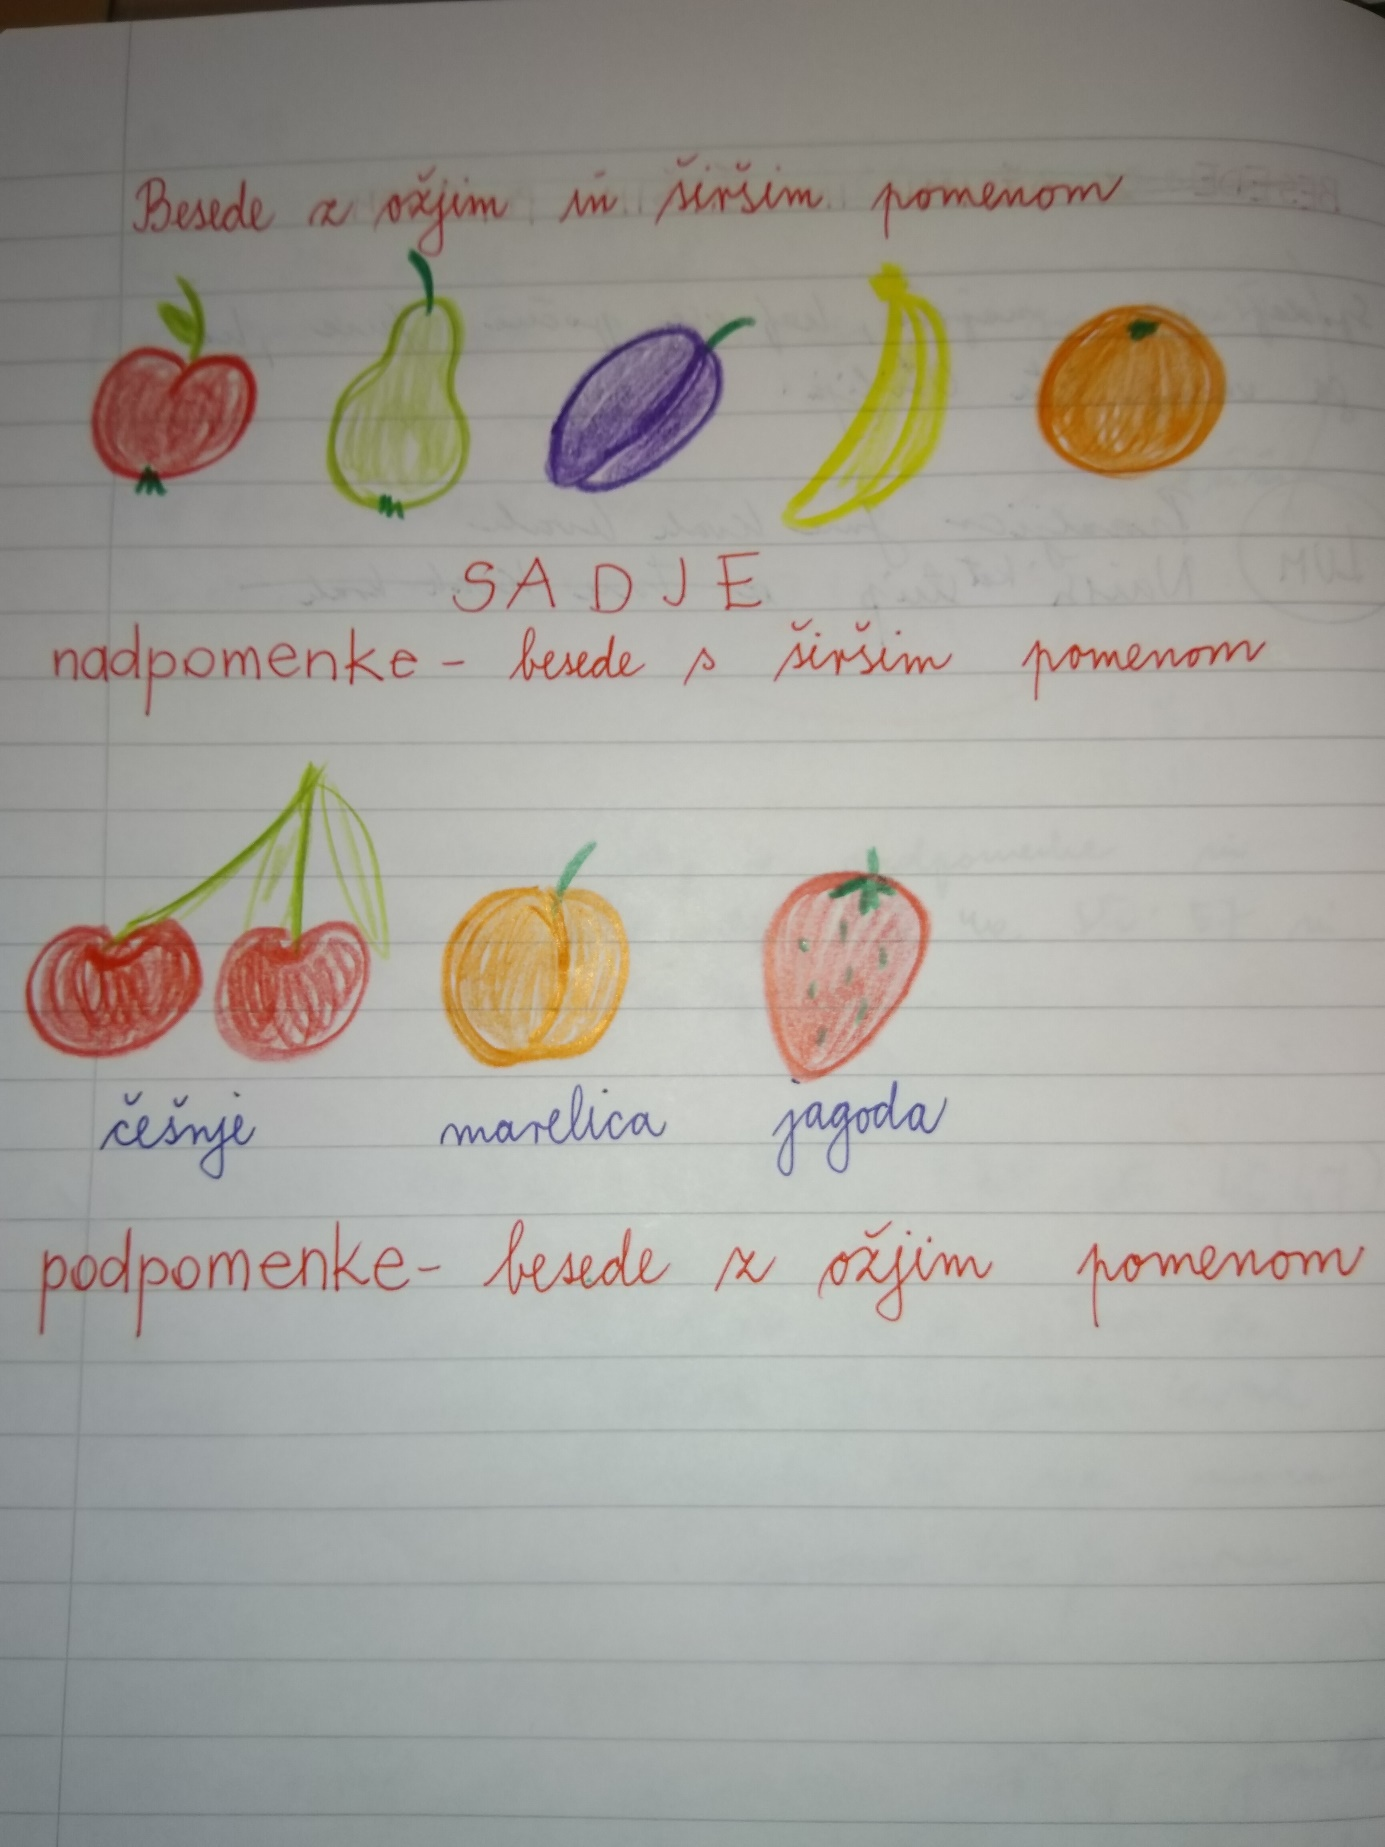 Besede z ožjim in širšim pomenom
SADJE
nadpomenke - besede s širšim pomenom
češnje marelica jagoda
podpomenke - besede z ožjim pomenom